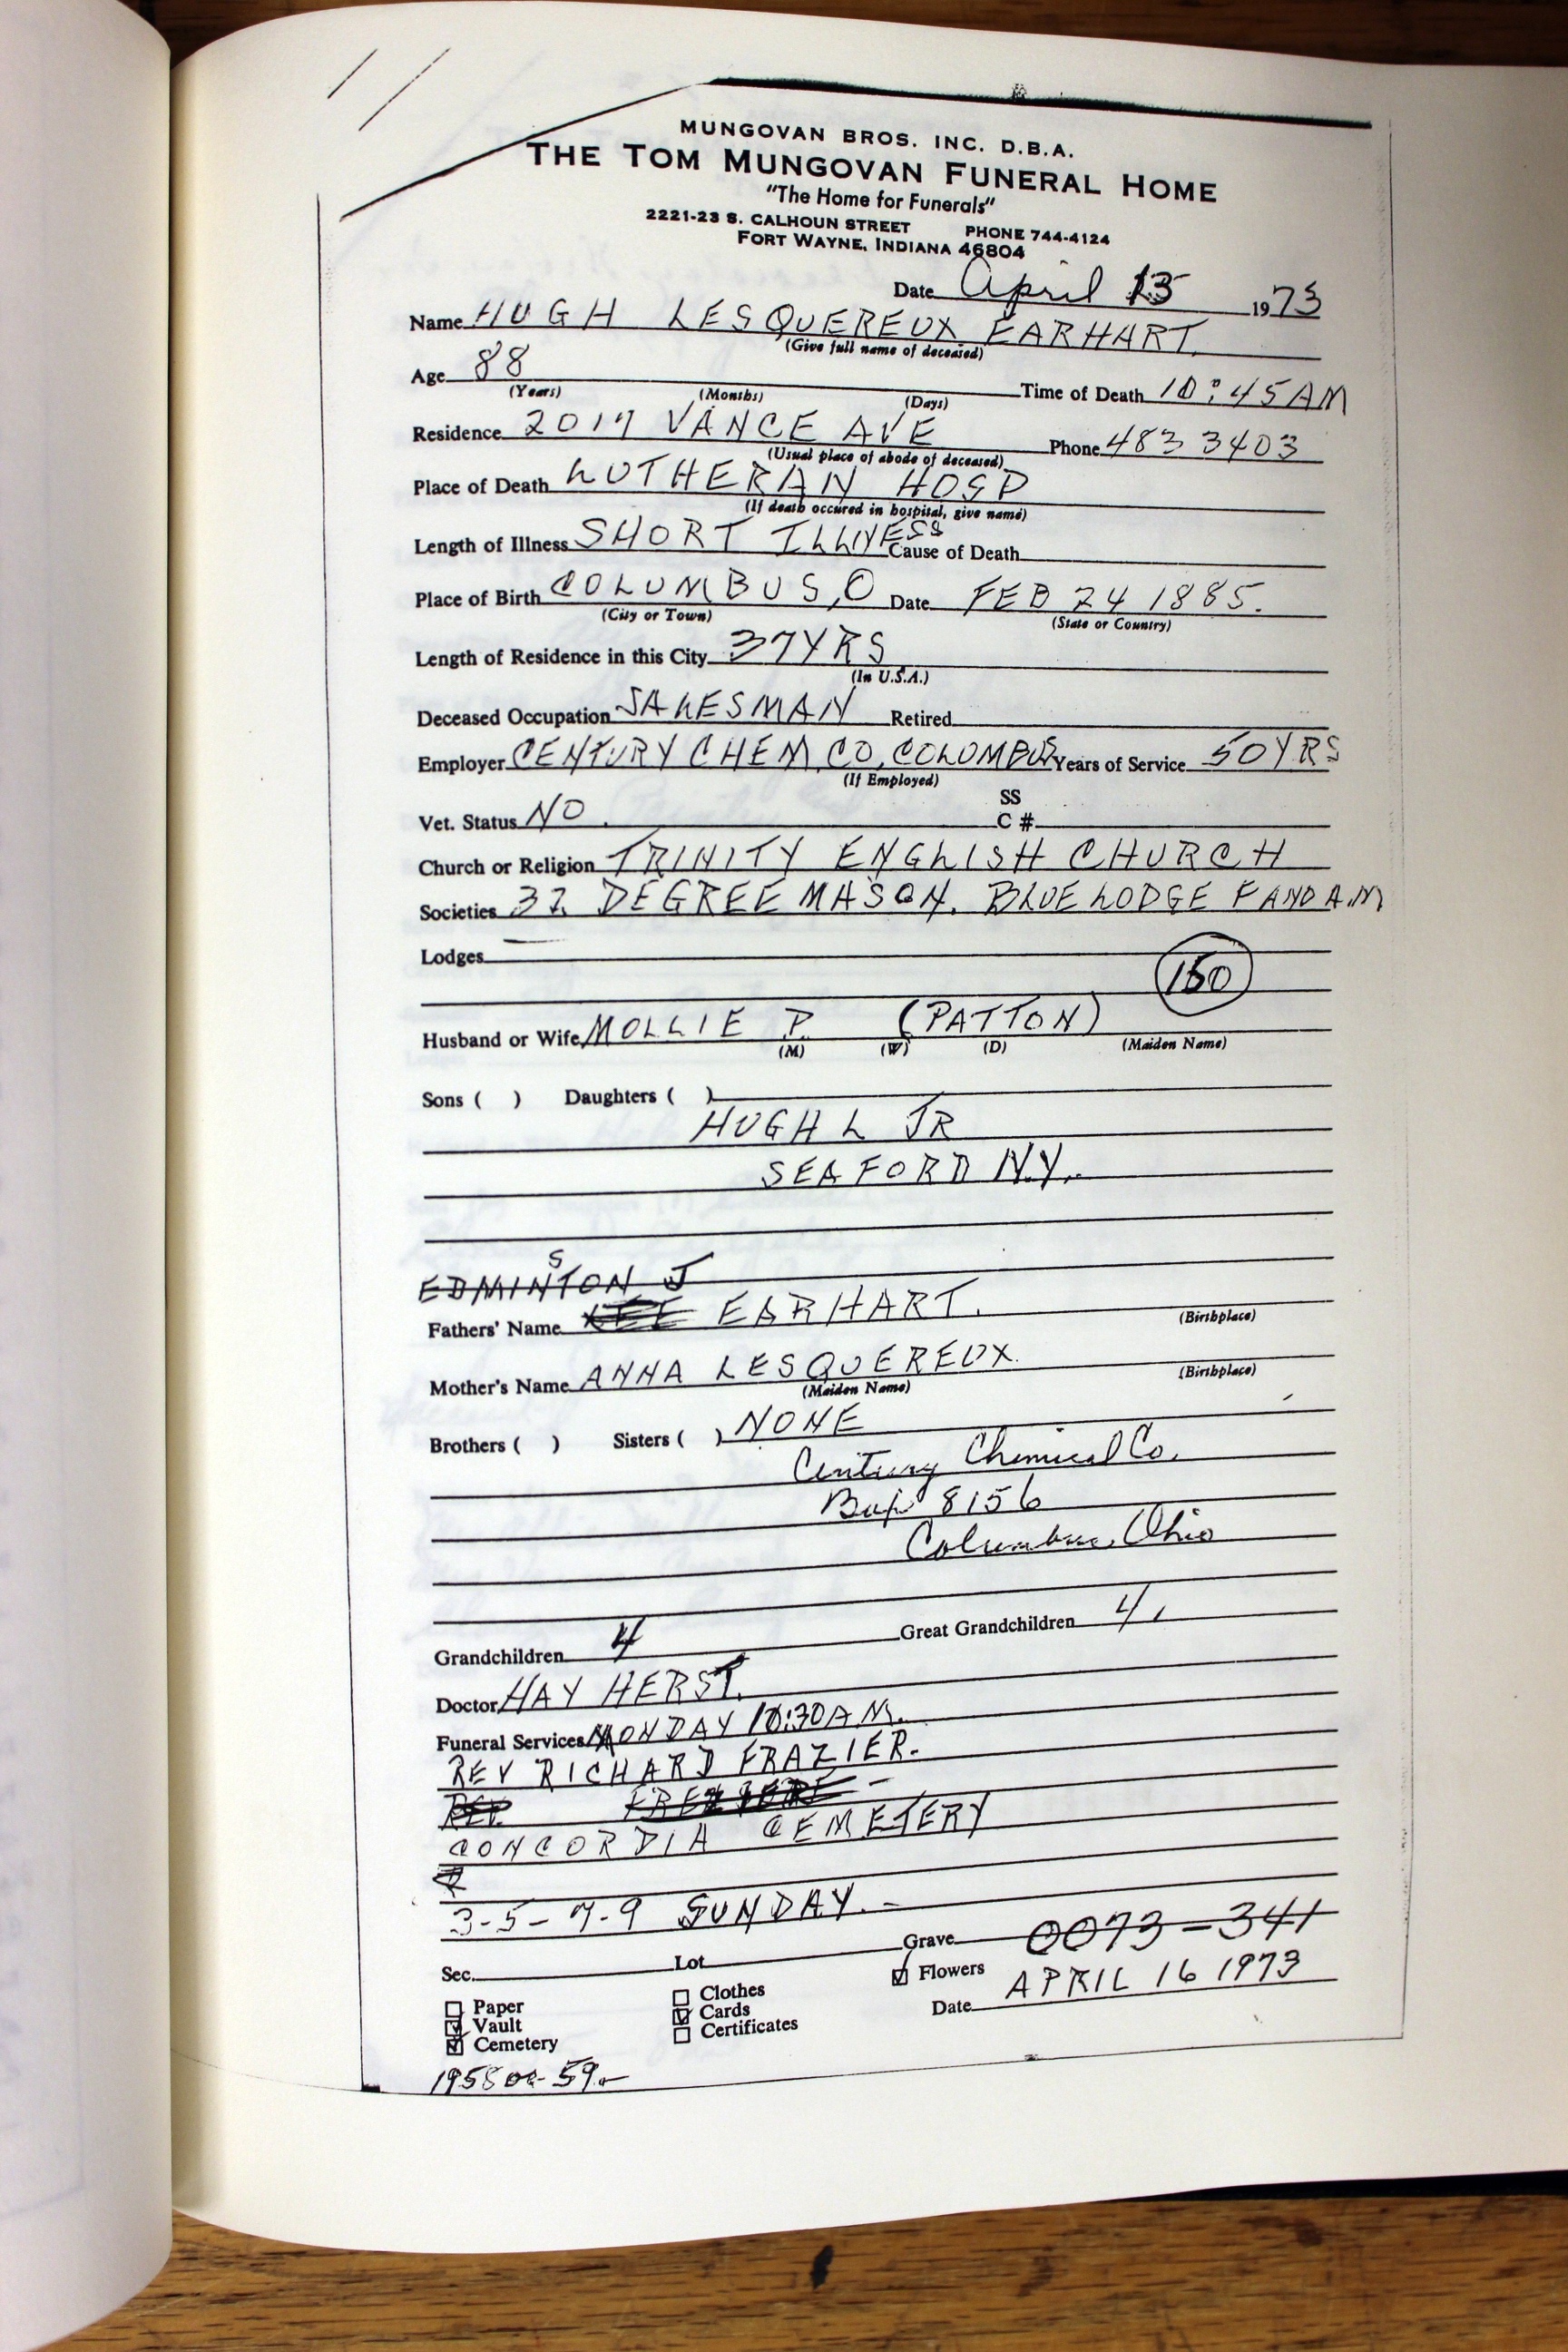 MUNGOVAN BROS. INC. D.B.A.
THE TOM MUNGOVAN FUNERAL HOME
"The Home for Funerals"
2221-23 S. CALHOUN STREET PHONE 744-4124
FORT WAYNE, INDIANA 46804
Date April 13 1973
Name HUGH LESQUEREUX EARHART.
(Give full name of deceased)
Age 88 Time of Death 10:45AM
(Years) (Months) (Days)
Residence 2017 VANCE AVE Phone 483 3403
(Usual place of abode of deceased)
Place of Death LUTHERAN HOSP
(If death occured in hospital, give name)
Length of Illness SHORT ILLNESS Cause of Death
Place of Birth COLUMBUS, O Date FEB 24 1885.
(City or Town) (State or Country)
Length of Residence in this City 37YRS
(In U.S.A.)
Deceased Occupation SALESMAN Retired
Employer CENTURY CHEM CO, COLUMBUS Years of Service 50YRS
(If Employed)
SS
Vet. Status NO. C #
Church or Religion TRINITY ENGLISH CHURCH
Societies 32 DEGREE MASON. BLUE LODGE F AND A.M
Lodges
150
Husband or Wife MOLLIE P. (PATTON)
(M) (W) (D) (Maiden Name)
Sons ( ) Daughters ( )
HUGH L JR
SEAFORD N.Y.
EDMINSTON J
Fathers' Name EARHART. (Birthplace)
Mother's Name ANNA LESQUEREUX. (Birthplace)
(Maiden Name)
Brothers ( ) Sisters ( ) NONE
Century Chemical Co.
Box 8156
Columbus, Ohio
Grandchildren 4 Great Grandchildren 4.
Doctor HAY HERST.
Funeral Services MONDAY 10:30A.M.
REV RICHARD FRAZIER.-
REV.
CONCORDIA CEMETERY
3-5-7-9 SUNDAY.-
Sec. Lot Grave 0073-341
Paper Clothes Flowers
Vault Cards Date APRIL 16 1973
Cemetery Certificates